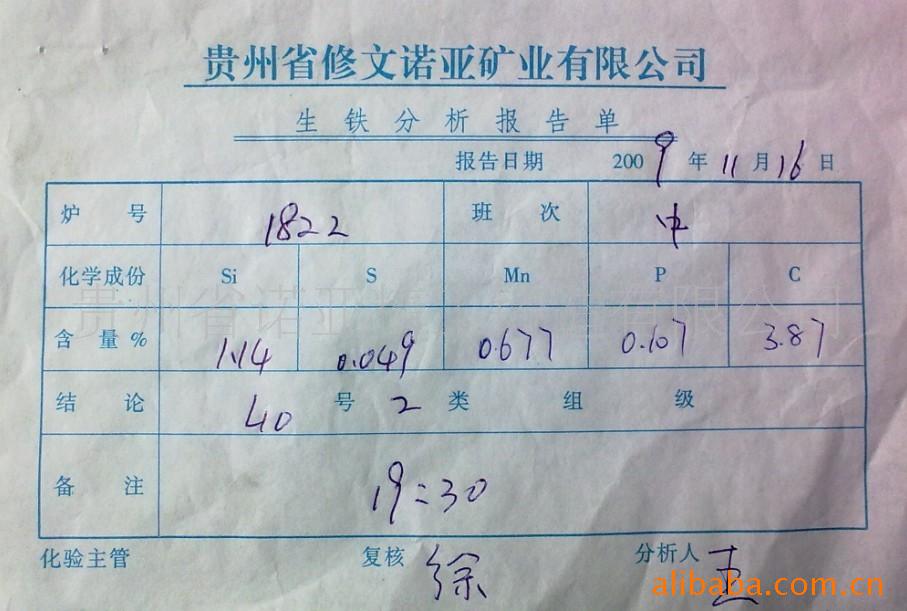 贵州省修文诺亚矿业有限公司
生铁分析报告单
报告日期 2009年11月16日
炉号 1822 班次 中
化学成份 Si S Mn P C
含量% 1.14 0.049 0.677 0.107 3.87
结论 40号2类组级
备注 19:30
化验主管 复核 徐 分析人 王
alibaba.com.cn